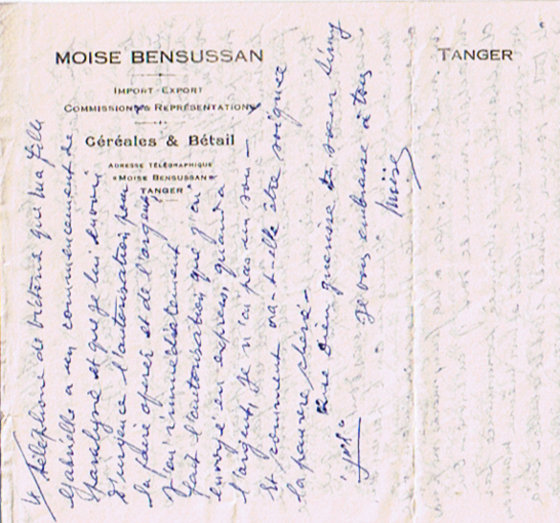 MOISE BENSUSSAN
TANGER
IMPORT-EXPORT
COMMISSIONS & REPRESENTATIONS
Céréales & Bétail
ADRESSE TÉLÉGRAPHIQUE
«MOISE BENSUSSAN»
TANGER
téléphone de Victoria que ma fille
Gabrielle a un commencement de
Paralysie et que je lui envoie
d'urgence l'autorisation pour
la faire opérer et de l'argent
J'ai immédiatement
fait l'autorisation que j'ai
envoyé en express, quand a
l'argent, je n'ai pas un sou-
Et comment va-t-elle être soignée
la pauvre chère-
que Dieu guérisse ta sœur
Je vous embrasse à tous
Moïse